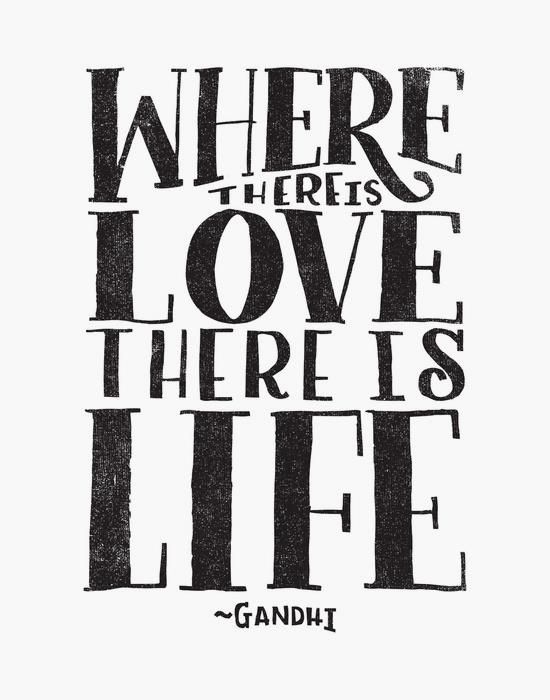 WHERE
THERE IS
LOVE
THERE IS
LIFE
~GANDHI